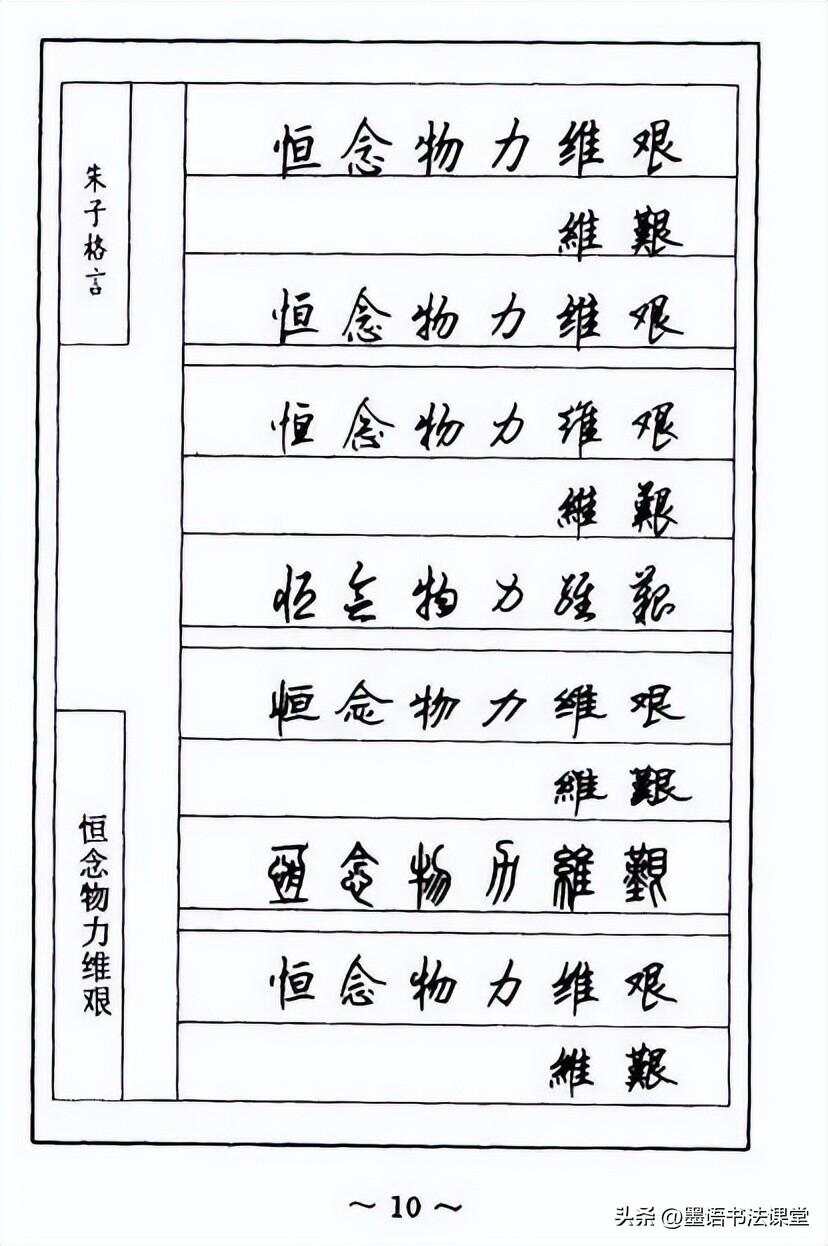 朱子格言
恒念物力维艰
恒念物力维艰
維艱
恒念物力维艰
恒念物力维艰
維艱
恒念物力维艱
恒念物力维艰
維艱
恆念物力維艱
恒念物力维艰
維艱
~10~
头条 @墨语书法课堂